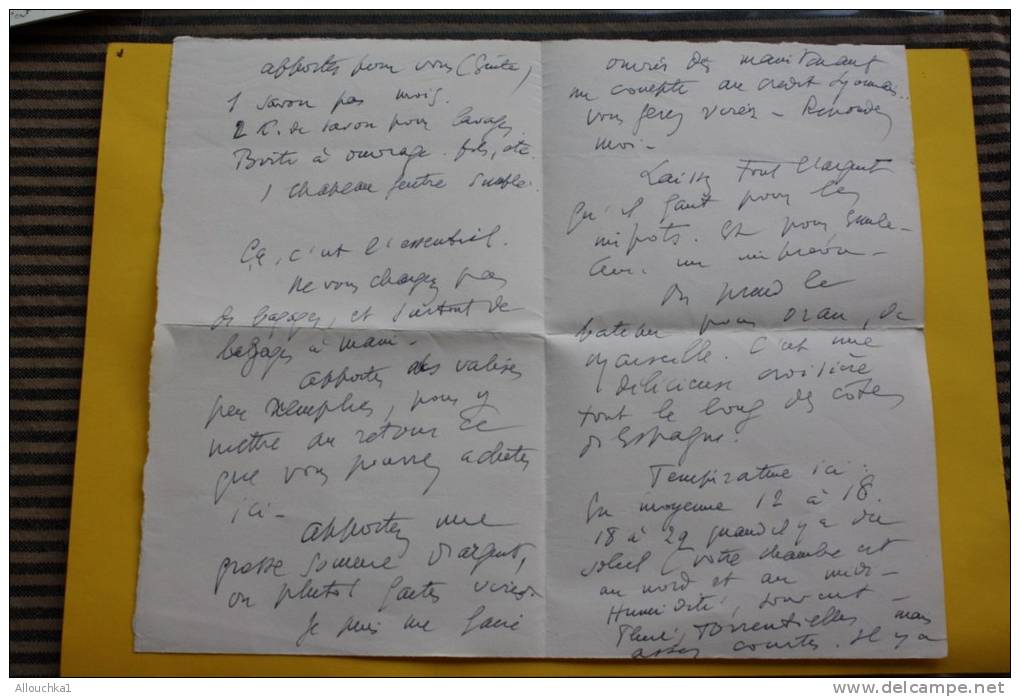 apportez pour vous (Suite)
1 savon par mois.
2 K. de savon pour lavages
Boite à ouvrage. fils, etc.
1 chapeau feutre souple.
Ça, c'est l'essentiel.
Ne vous chargez pas
de bagages, et surtout de
bagages à main.
apportez des valises
peu remplies, pour y
mettre au retour ce
que vous pourrez acheter
ici -
apportez une
grosse somme d'argent,
ou plutot faites virer
Je puis me faire
ouvrir dès maintenant
un compte au crédit Lyonnais..
vous ferez virer - Répondez
moi -
Laissez tout l'argent
qu'il faut pour les
impots. Et pour
On prend le
bateau pour Oran, de
Marseille. C'est une
délicieuse croisière
tout le long des côtes
d'Espagne.
Température ici :
En moyenne 12 à 18.
18 à 29 quand il y a du
soleil (votre chambre est
au nord et au midi -
Humidité, souvent -
Pluie, Torrentielles, mais
assez courtes. Il y a
Allouchka1
www.delcampe.net